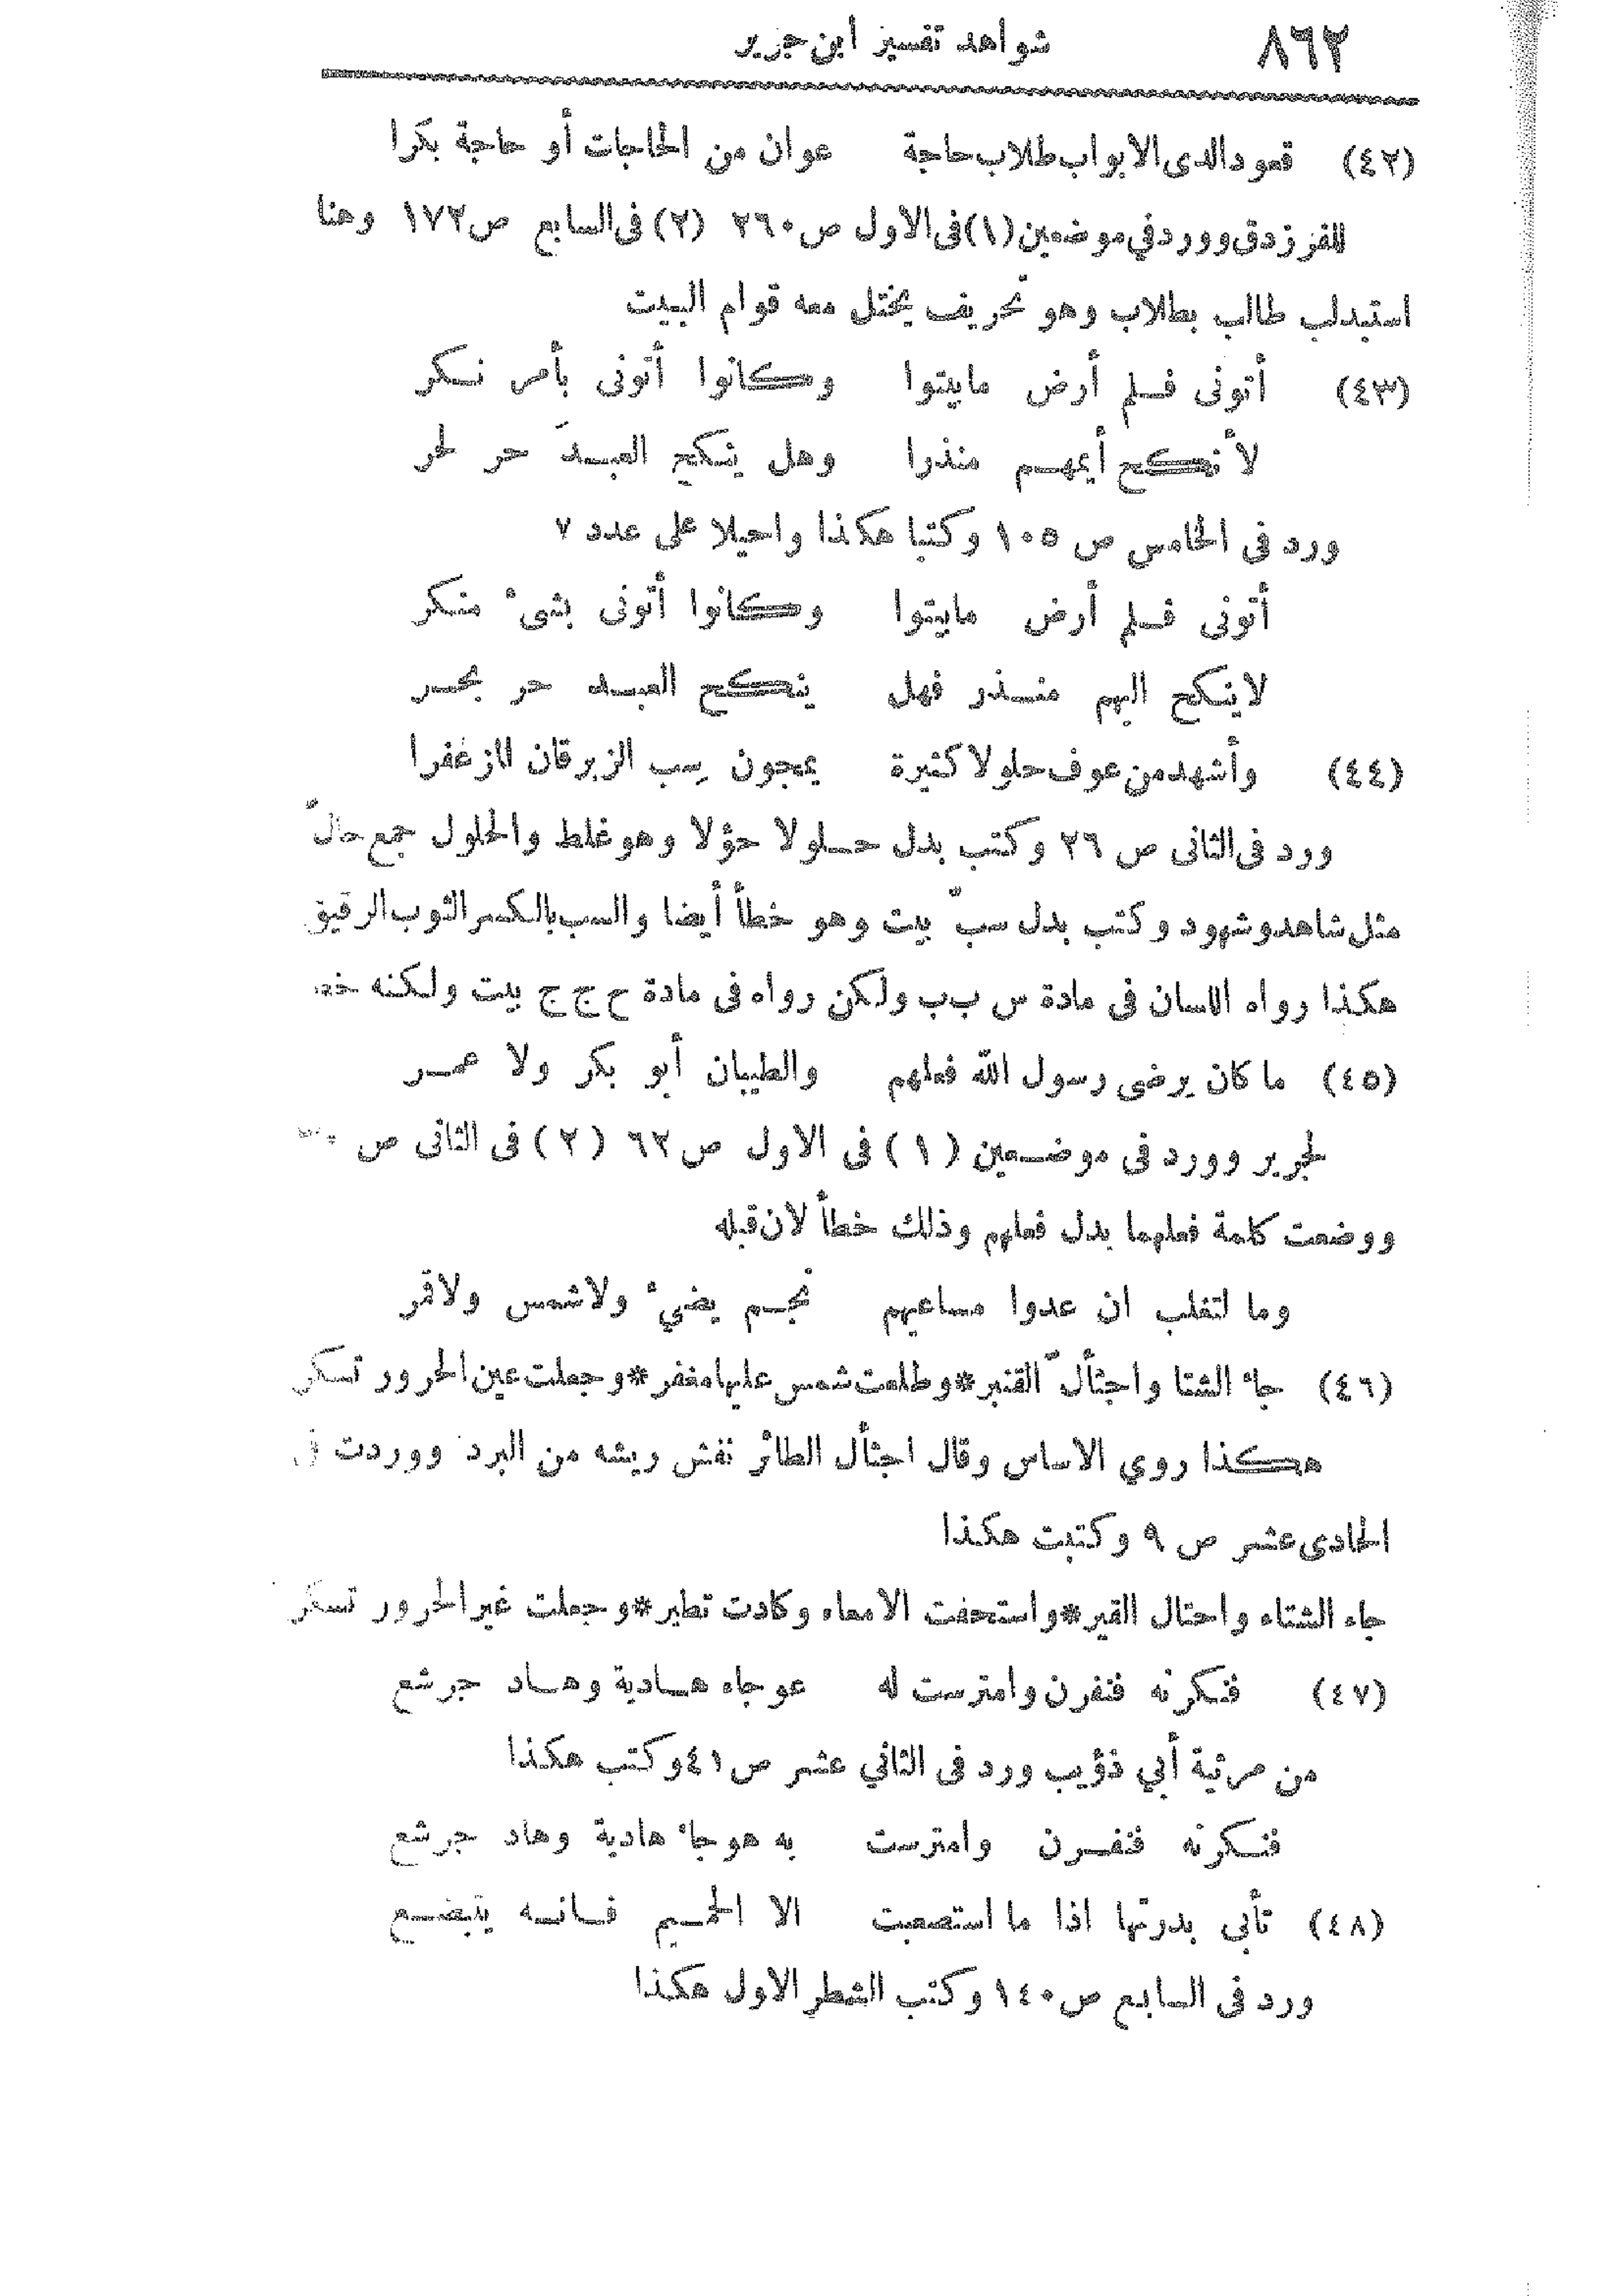 ٨٦٢ شواهد تفسير ابن جرير
(٤٢) قعود الدى الابواب طلاب حاجة عوان من الحاجات أو حاجة بكرا
للفرزدق وورد في موضعين (١) فى الاول ص ٢٦٠ (٢) فى السابع ص ١٧٢ وهنا
استبدلب طالب بطلاب وهو تحريف يختل معه قوام البيت
(٤٣) أتونى فلم أرض مابيتوا وكانوا أتونى بأمر نكر
لأنكح أيمهم منذرا وهل ينكح العبدَ حر لحر
ورد فى الخامس ص ١٠٥ وكتبا هكذا واحيلا على عدد ٧
أتونى فلم أرض مابيتوا وكانوا أتونى بشىء منكر
لاينكح اليهم منذر فهل ينكح العبد حر بحر
(٤٤) وأشهد من عوف حلولا كثيرة يحجون سِب الزبرقان المزعفرا
ورد فى الثانى ص ٢٦ وكتب بدل حلولا حؤلا وهو غلط والحلول جمع حالّ
مثل شاهد وشهود وكتب بدل سبّ بيت وهو خطأ أيضا والسب بالكسر الثوب الرقيق
هكذا رواه اللسان فى مادة س ب ب ولكن رواه فى مادة ح ج ج بيت ولكنه
(٤٥) ما كان يرضى رسول الله فعلهم والطيبان أبو بكر ولا عمر
لجرير وورد فى موضعين (١) فى الاول ص ٦٢ (٢) فى الثانى ص
ووضعت كلمة فعلهما بدل فعلهم وذلك خطأ لان قبله
وما لتغلب ان عدوا مساعيهم نجم يضيء ولاشمس ولاقر
(٤٦) جاء الشتا واجثألّ القنبر*وطلعت شمس عليها مغفر*وجعلت عين الحرور تسكر
هكذا روي الاساس وقال اجثأل الطائر نفش ريشه من البرد ووردت فى
الحادى عشر ص ٩ وكتبت هكذا
جاء الشتاء واحتال القير*واستخفت الامعاء وكادت تطير*وجعلت غير الحرور تسكر
(٤٧) فنكرنه فنفرن وامترست له عوجاء هادية وهاد جرشع
من مرثية أبي ذؤيب ورد فى الثاني عشر ص ٤١ وكتب هكذا
فنكرنه فنفرن وامترست به هوجاء هادية وهاد جرشع
(٤٨) تأبى بدرتها اذا ما استصعبت الا الحميم فانه يتبضع
ورد فى السابع ص ١٤٠ وكتب الشطر الاول هكذا